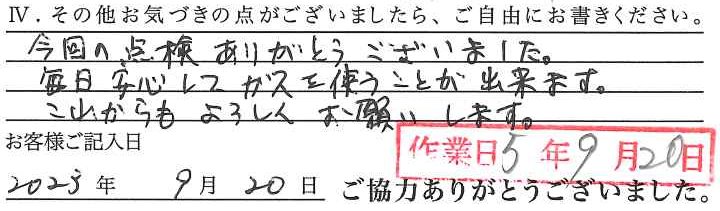 Ⅳ．その他お気づきの点がございましたら、ご自由にお書きください。
今回の点検ありがとうございました。
毎日安心してガスを使うことが出来ます。
これからもよろしくお願いします。
お客様ご記入日
作業日5年9月20日
2023年 9月20日 ご協力ありがとうございました。